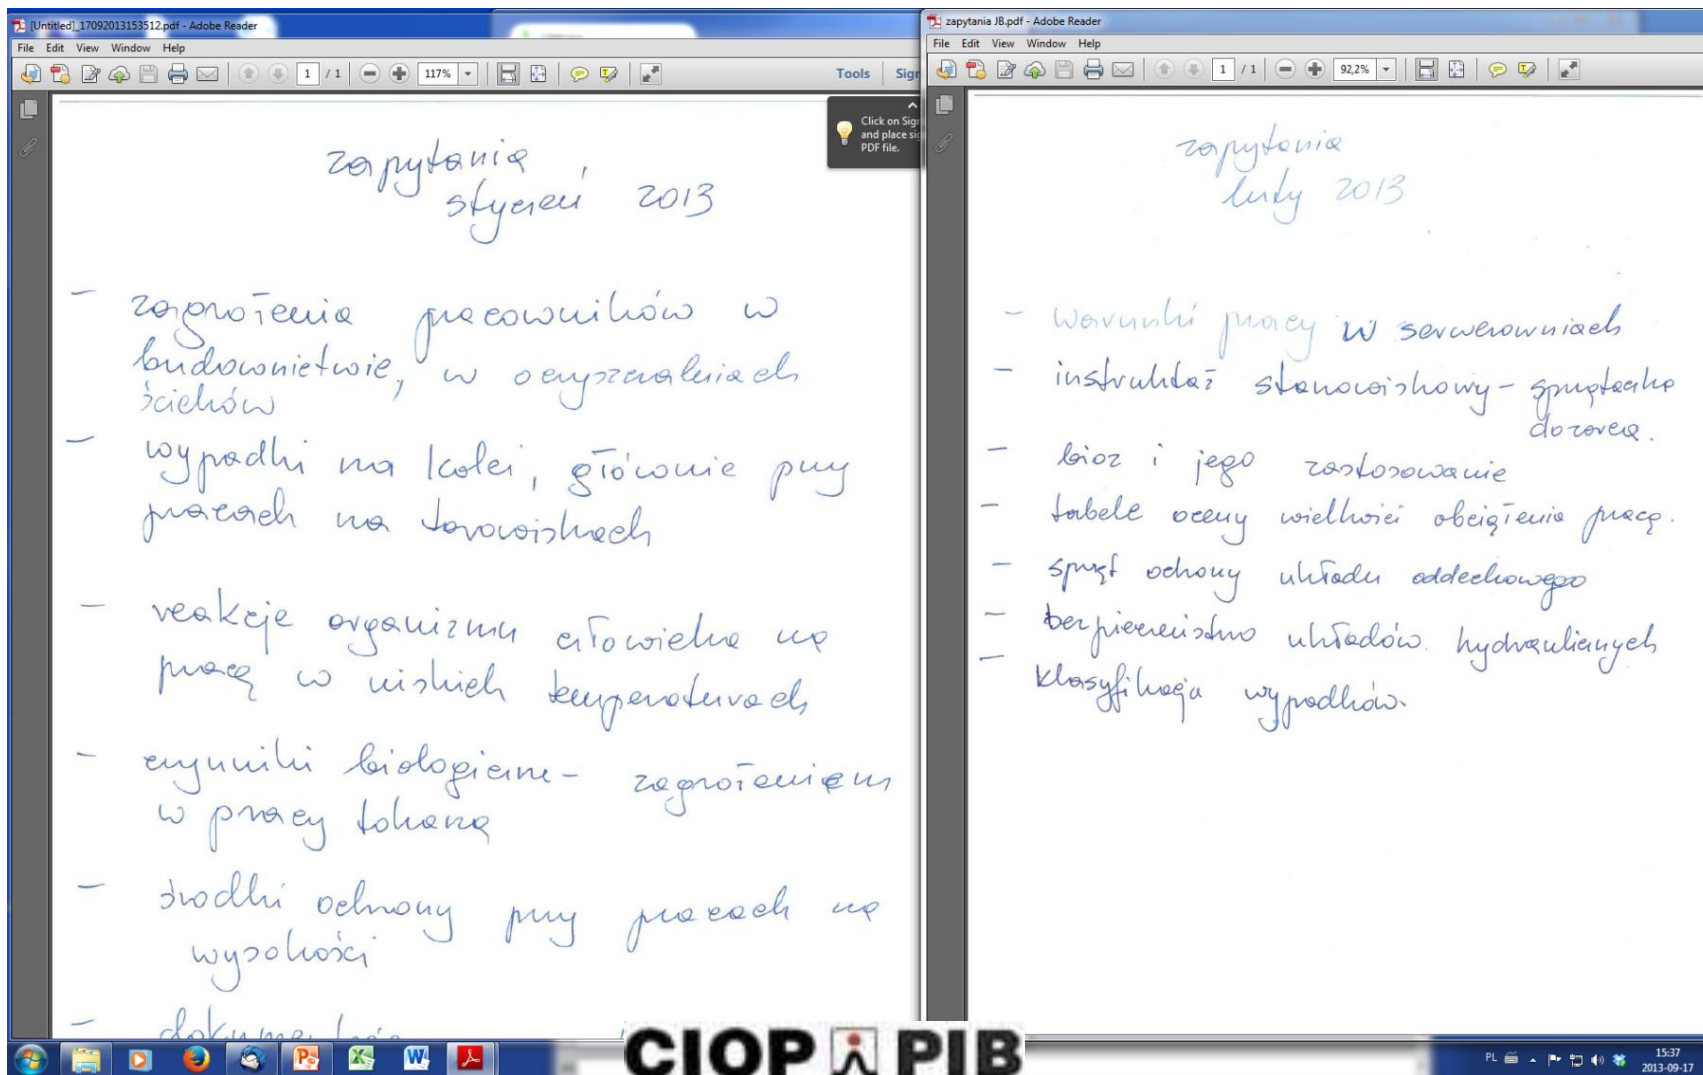 [Untitled]_17092013153512.pdf - Adobe Reader
File Edit View Window Help
1 / 1 117% Tools Sign
Click on Sign
and place sig
PDF file.
zapytania
styczeń 2013
- zagrożenia pracowników w
budownictwie, w oczyszczalniach
ścieków
- wypadki na kolei, głównie przy
pracach na torowiskach
- reakcje organizmu człowieka na
pracę w niskich temperaturach
- czynniki biologiczne - zagrożeniem
w pracy tokarza
- środki ochrony przy pracach na
wysokości
zapytania JB.pdf - Adobe Reader
File Edit View Window Help
1 / 1 92,2%
zapytania
luty 2013
- warunki pracy w serwerowniach
- instruktaż stanowiskowy - sprzątaczka
dozorca.
- bioz i jego zastosowanie
- tabele oceny wielkości obciążenia pracą.
- sprzęt ochrony układu oddechowego
- bezpieczeństwo układów hydraulicznych
- klasyfikacja wypadków.
CIOP PIB
PL 15:37
2013-09-17